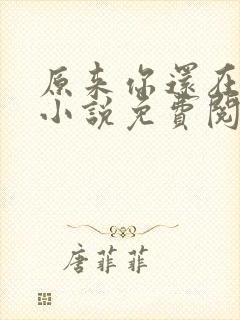 原来你還在
小說免費閱
唐菲菲